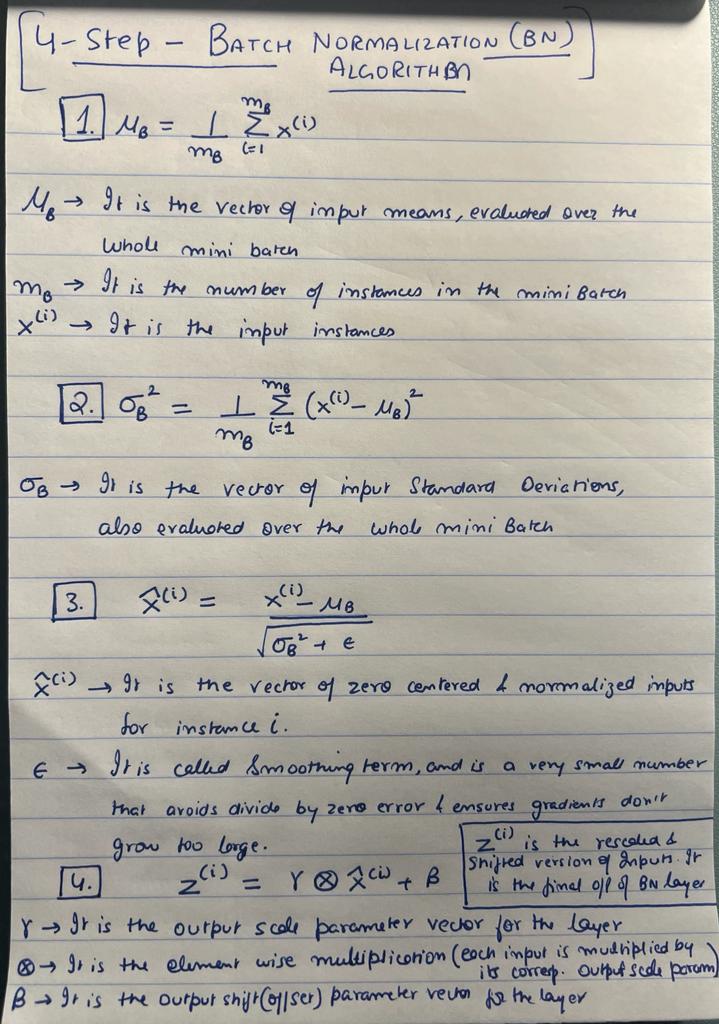 [4-Step - BATCH NORMALIZATION (BN)
ALGORITHM]
1. μ_B = 1/m_B Σ_{i=1}^{m_B} x^(i)
μ_B → It is the vector of input means, evaluated over the
whole mini batch
m_B → It is the number of instances in the mini Batch
x^(i) → It is the input instances
2. σ_B² = 1/m_B Σ_{i=1}^{m_B} (x^(i) - μ_B)²
σ_B → It is the vector of input Standard Deviations,
also evaluated over the whole mini Batch
3. x̂^(i) = (x^(i) - μ_B) / √(σ_B² + ε)
x̂^(i) → It is the vector of zero centered & normalized inputs
for instance i.
ε → It is called Smoothing term, and is a very small number
that avoids divide by zero error & ensures gradients don't
grow too large.
4. z^(i) = γ ⊗ x̂^(i) + β
z^(i) is the rescaled &
shifted version of Inputs. It
is the final o/p of BN layer
γ → It is the output scale parameter vector for the layer
⊗ → It is the element wise multiplication (each input is multiplied by
its corresp. output scale param)
β → It is the output shift (offset) parameter vector for the layer